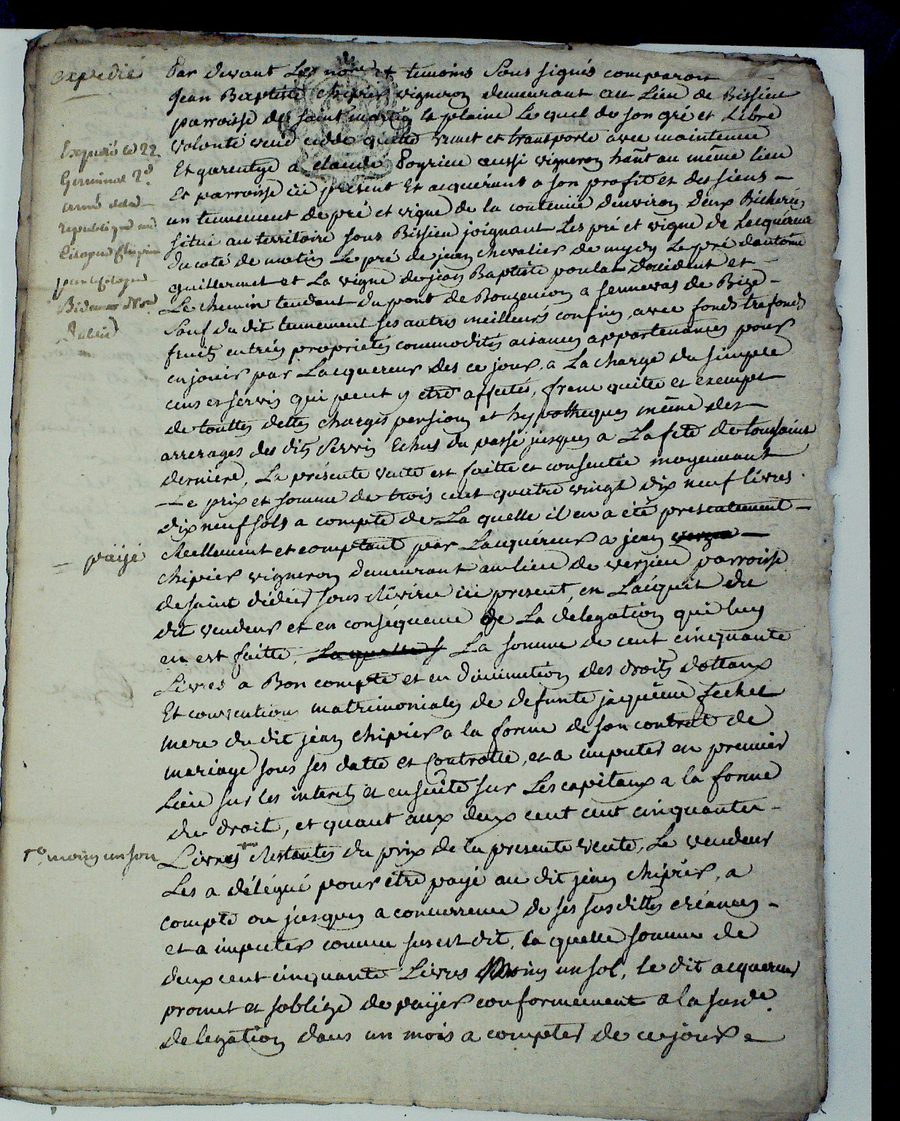 expedié
Par devant Les no.re et temoins Sous signés comparoit
Jean Baptiste chipier vigneron demeurant au Lieu de Bissieu
parroisse de saint martin la plaine Le quel de son gré et Libre
volonté vend cede quitte remet et transporte avec maintenue
Et garentye a claude aussi vigneron hãnt au même lieu
Et parroisse ici present Et acquérant a son profit et des siens
un tennement de pré et vigne de la contenue denviron deux Bicherées
situé au territoire sous Bissieu joignant Les pré et vigne de Lacquereur
du coté de matin Le pré de jean chevalier de mydy Le pré dantoine
guillermet et La vigne de jean Baptiste poulat doccident et
Le chemin tendant du pont de Bouzenion a sennevas de Bize
Sauf du dit tennement ses autres meilleurs confins avec fonds trefonds
fruits entrées proprietés commodités aisances appartenances pour
en jouir par Lacquereur des ce jour, a La charge du simple
cens et servis qui peut y etre affectés, franc quitte et exempt
de touttes dettes charges pension et hypotheques même des
arrerages des dits servis Echus du passé jusques a La fete de toussaint
derniere, La présente vente est faitte et consentie moyenant
Le prix et somme de trois cent quatre vingt dix neuf livres
dix neuf sols a compte de La quelle il en a été presentement
Réellement et comptant par Lacquereur a jean
chipier vigneron demeurant au lieu de verzieu parroisse
de saint didier sous Riverie ici present, en Lacquit du
dit vendeur et en conséquence de La delegation qui luy
en est faitte, La quelle La somme de cent cinquante
Livres a Bon compte et en diminution des droits dottaux
Et convention matrimoniales de defunte jacqueme
mere du dit jean chipier a la forme de son contrat de
mariage sous ses datte et Controlle, et a imputer en premier
Lieu sur les interets et ensuite sur Les capitaux a la forme
du droit, et quant aux deux cent cinquante
Livres Restantes du prix de la presente vente, Le vendeur
Les a délégué pour être payé au dit jean chipier, a
compte ou jusques a concurrence de ses susdittes créances
et a imputer comme sus est dit, la quelle somme de
deux cent cinquante Livres Moins un sol, le dit acquereur
promet et soblige de païer conformement a la sus de
delegation dans un mois a compter de ce jour
Expedié le 22
Germinal 2e
année de la
republique au
Citoyen Chipier
païé
r.o moins un sou